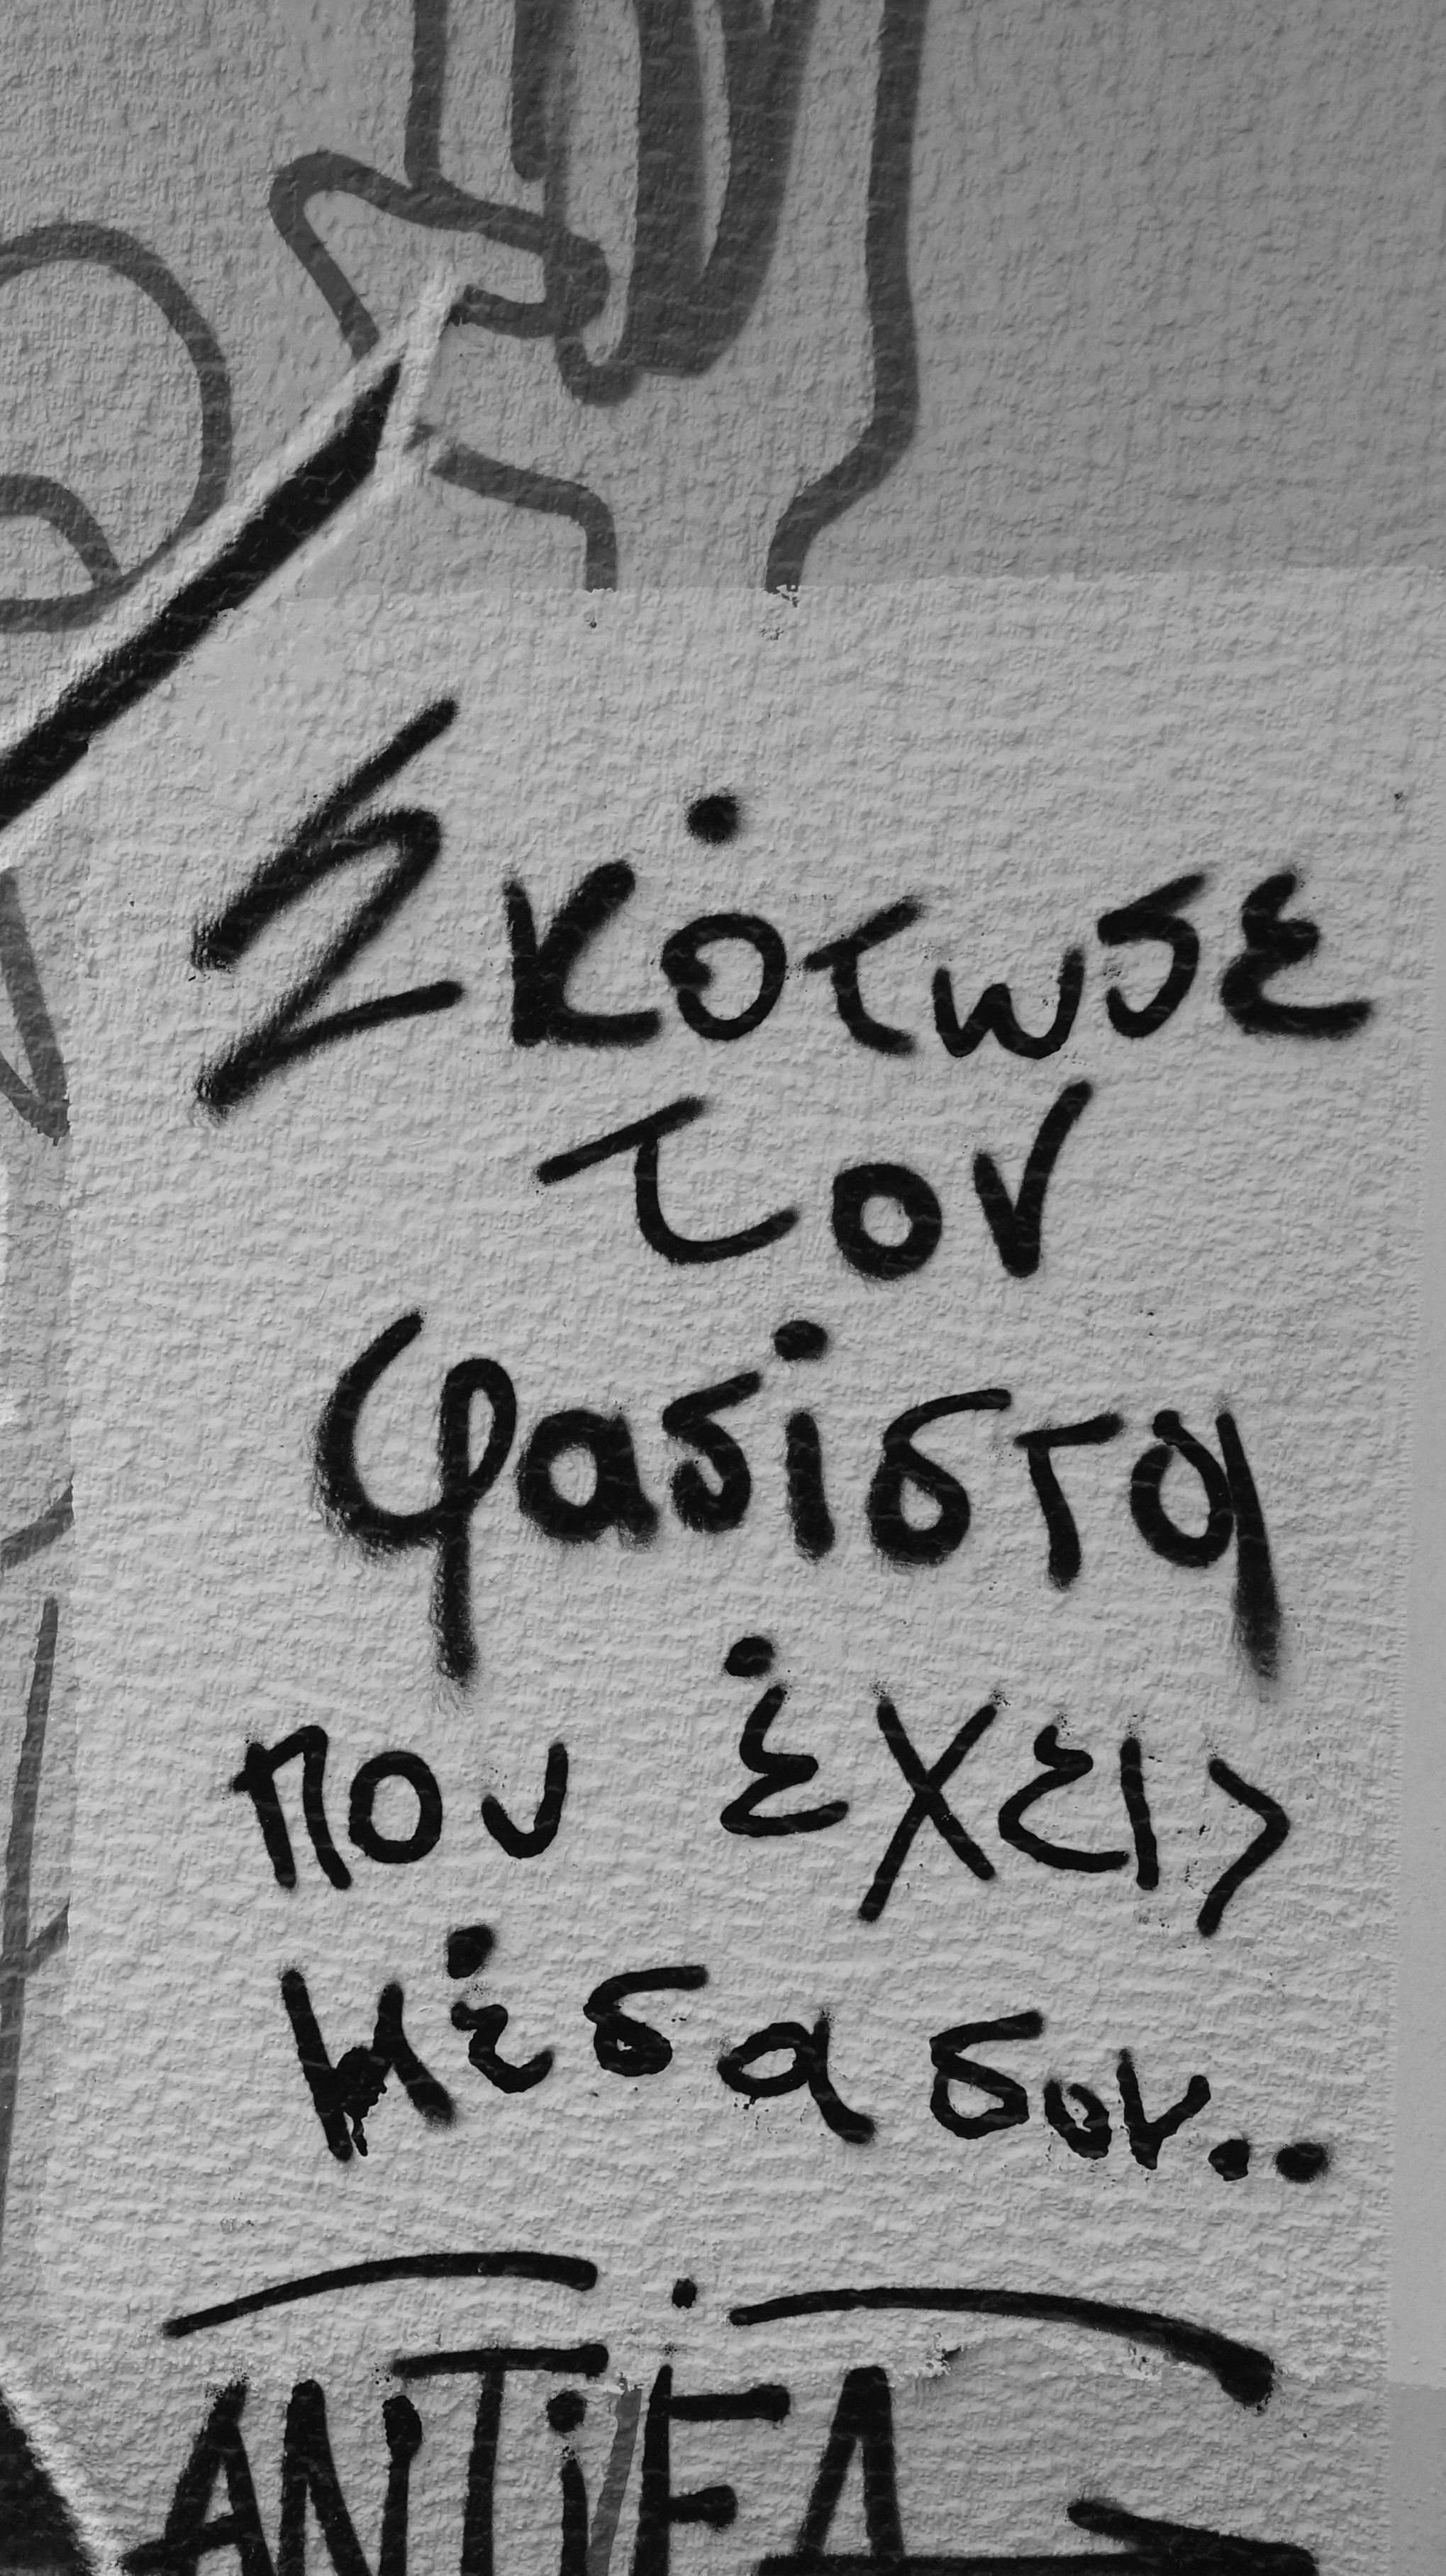 Σκότωσε
τον
φασίστα
που έχεις
μέσα σου..
ANTiFA